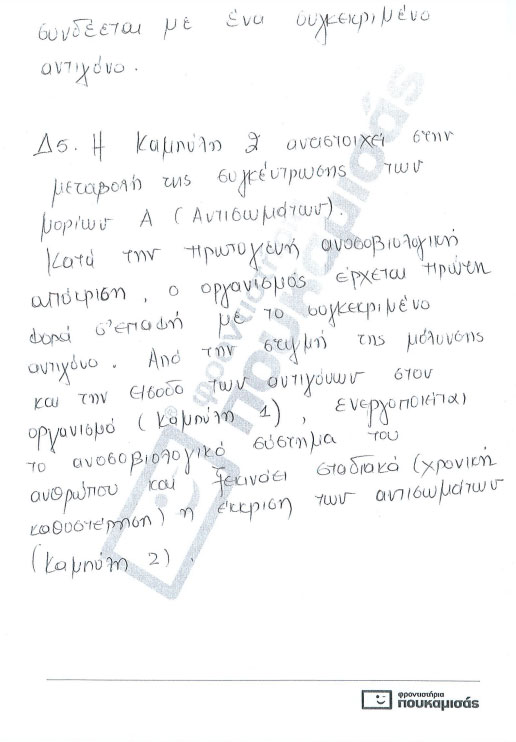 συνδέεται με ένα συγκεκριμένο
αντιγόνο.
Δ5. Η Καμπύλη 2 αντιστοιχεί στην
μεταβολή της συγκέντρωσης των
μορίων Α (Αντισωμάτων).
Κατά την πρωτογενή ανοσοβιολογική
απόκριση, ο οργανισμός έρχεται πρώτη
φορά σ'επαφή με το συγκεκριμένο
αντιγόνο. Από την στιγμή της μόλυνσης
και την είσοδο των αντιγόνων στον
οργανισμό (Καμπύλη 1), ενεργοποιείται
το ανοσοβιολογικό σύστημα του
ανθρώπου και ξεκινάει σταδιακά (χρονική
καθυστέρηση) η έκκριση των αντισωμάτων
(Καμπύλη 2).
φροντιστήρια
πουκαμισάς
φροντιστήρια
πουκαμισάς